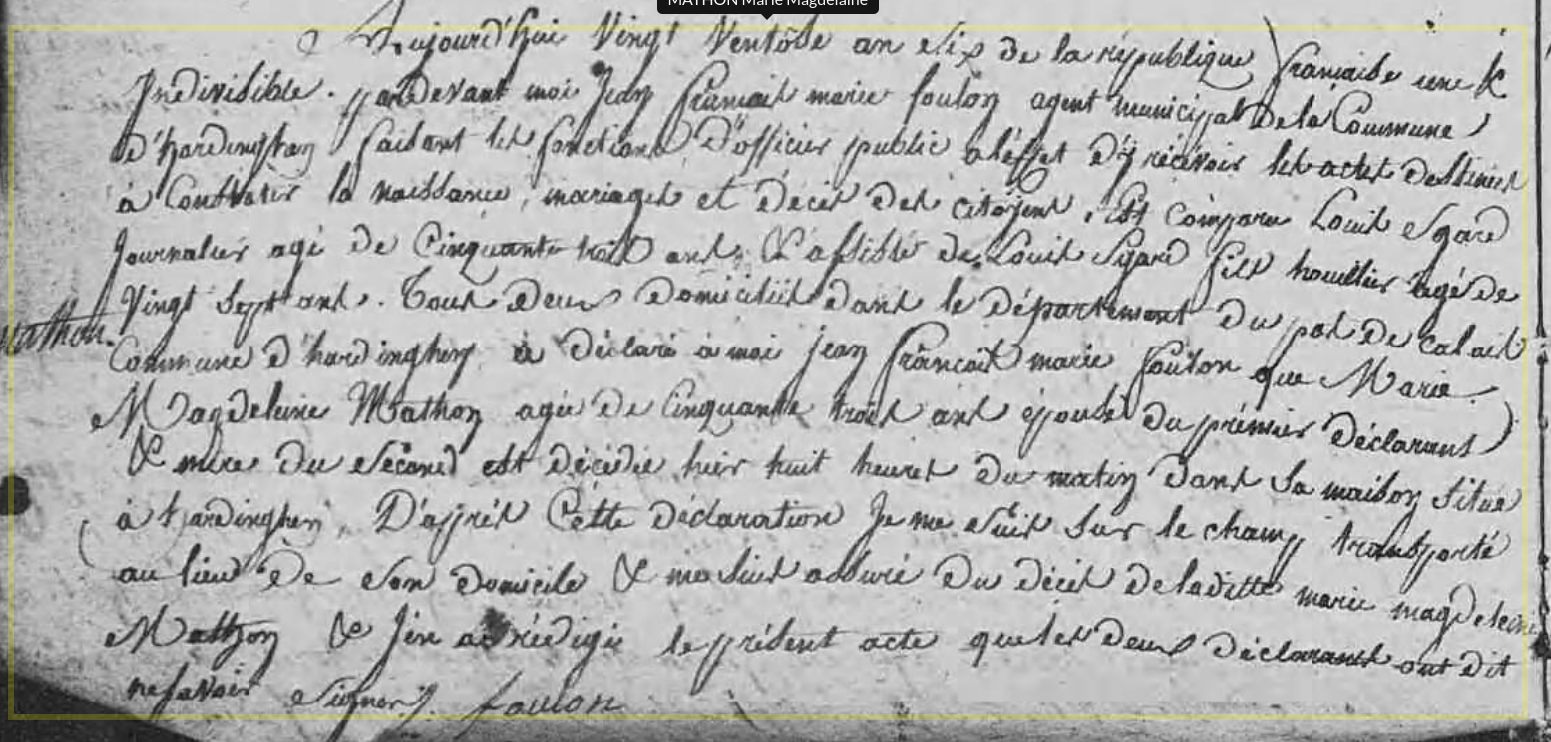 MATHON Marie Magdelaine
Aujourd'huie Vingt Ventôse an six de la république française une &
Indivisible. pardevant moi Jean françois marie foulon agent municipal de la Commune
d'hardinghen faisant les fonctions d'officier public a léffet d'y récévoir les actes destinés
à Constater la naissance, mariages et décès des citoyens, Est Comparu Louis Sgard
Journalier agé de Cinquante trois ans, & assisté de Louis Sgard fils houillier agé de
Vingt Sept ans. Tous deux domiciliés dans le département du pas de calais
Mathon.
Commune d'hardinghen, à déclaré à moi jean françois marie foulon que Marie
Magdeleine Mathon agée de Cinquante trois ans épouse du prémier déclarant
& mere du Sécond est décédée hier huit heures du matin dans Sa maison Situé
à hardinghen, D'après Cétte déclaration Je me Suis Sur le champ transporté
au lieu de Son domicile & me Suis assuré du décès de laditte marie magdeleine
Mathon & j'en ai rédigé le présent acte que les deux déclarants ont dit
ne Savoir Signer. foulon